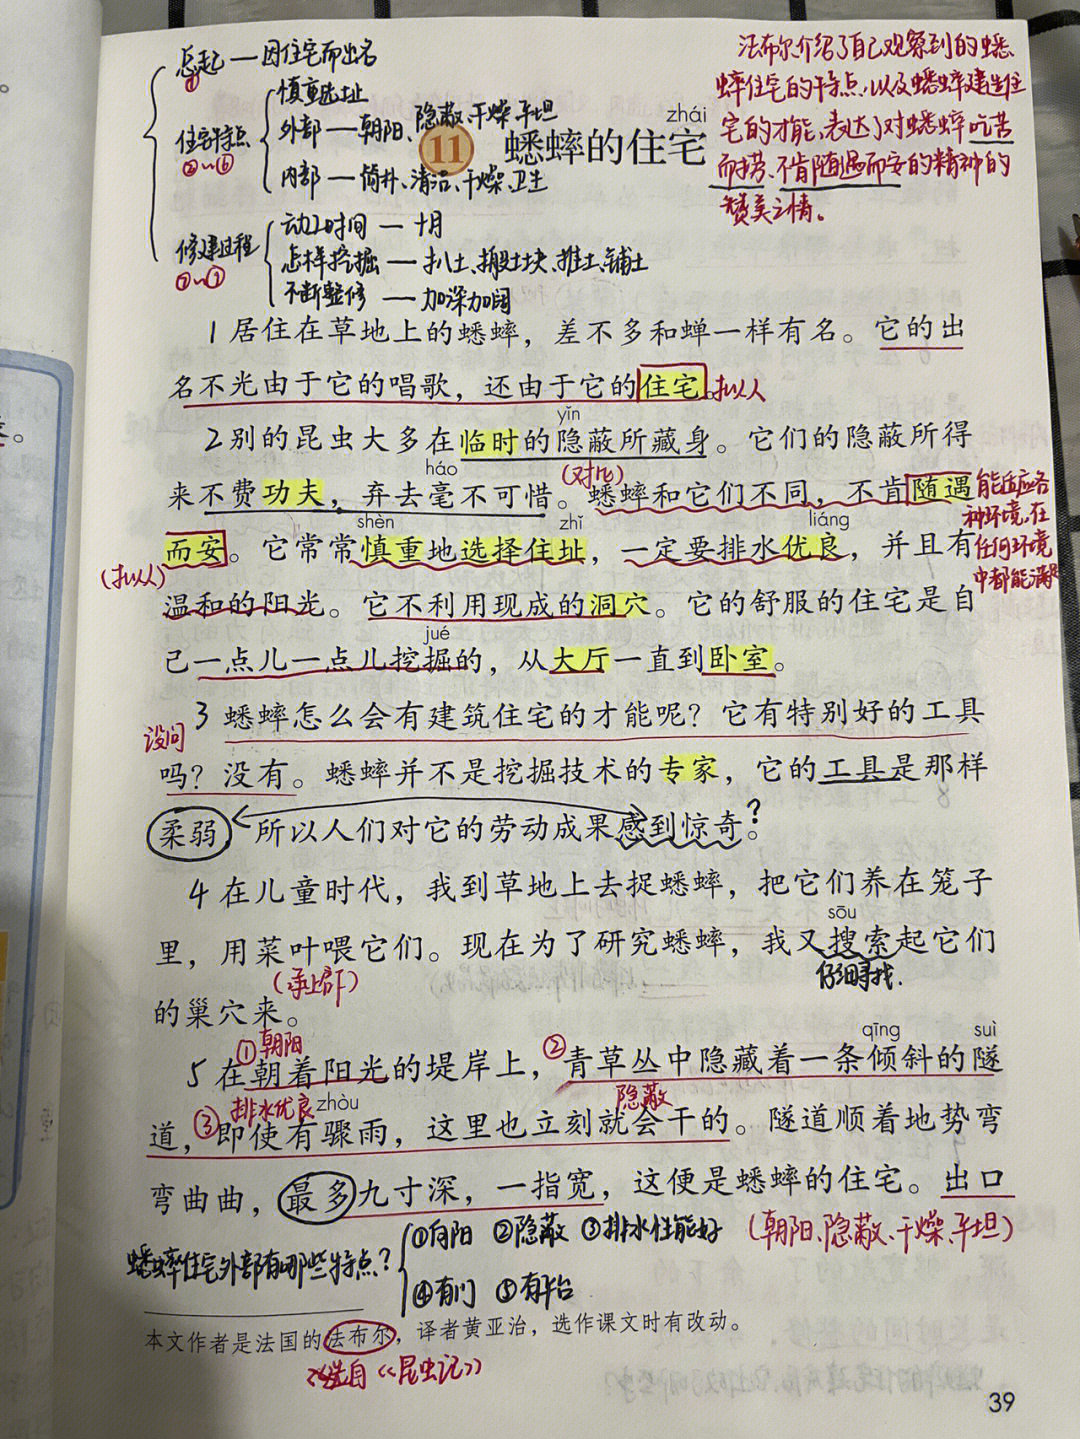 总起——因住宅而出名
①
慎重选址
住宅特点 外部——朝阳、隐蔽、干燥、平坦
②~⑥
内部——简朴、清洁、干燥、卫生
动工时间——十月
修建过程 怎样挖掘——扒土、搬土块、推土、铺土
⑦~⑨
不断整修——加深加阔
法布尔介绍了自己观察到的蟋
蟀住宅的特点,以及蟋蟀建造住
宅的才能,表达了对蟋蟀吃苦
而劳、不肯随遇而安的精神的
赞美之情。
zhái
11 蟋蟀的住宅
1 居住在草地上的蟋蟀，差不多和蝉一样有名。它的出
名不光由于它的唱歌，还由于它的住宅。拟人
yǐn
2 别的昆虫大多在临时的隐蔽所藏身。它们的隐蔽所得
háo (对比)
来不费功夫，弃去毫不可惜。蟋蟀和它们不同，不肯随遇
能适应各
种环境,在
任何环境
中都能满足
shèn zhǐ liáng
而安。它常常慎重地选择住址，一定要排水优良，并且有
(拟人)
温和的阳光。它不利用现成的洞穴。它的舒服的住宅是自
jué
己一点儿一点儿挖掘的，从大厅一直到卧室。
3 蟋蟀怎么会有建筑住宅的才能呢？它有特别好的工具
设问
吗？没有。蟋蟀并不是挖掘技术的专家，它的工具是那样
柔弱，所以人们对它的劳动成果感到惊奇。?
4 在儿童时代，我到草地上去捉蟋蟀，把它们养在笼子
sōu
里，用菜叶喂它们。现在为了研究蟋蟀，我又搜索起它们
(承上启下) 仔细寻找.
的巢穴来。
①朝阳 ② qīng suì
5 在朝着阳光的堤岸上，青草丛中隐藏着一条倾斜的隧
③排水优良 zhòu 隐蔽
道，即使有骤雨，这里也立刻就会干的。隧道顺着地势弯
弯曲曲，最多九寸深，一指宽，这便是蟋蟀的住宅。出口
(朝阳、隐蔽、干燥、平坦)
蟋蟀住宅外部有哪些特点? ①向阳 ②隐蔽 ③排水性能好
④有门 ⑤有平台
本文作者是法国的法布尔，译者黄亚治，选作课文时有改动。
选自《昆虫记》
39